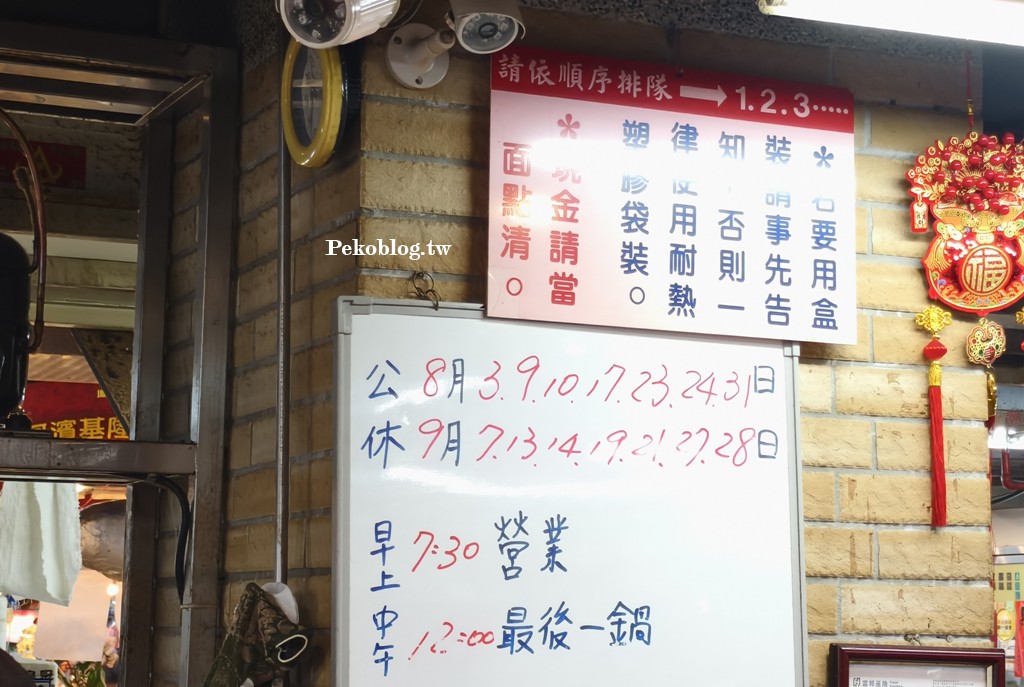 請依順序排隊 → 1.2.3.....
*若要用盒
裝請事先告
知,否則一
律使用耐熱
塑膠袋裝。
*現金請當
面點清。
Pekoblog.tw
公 8月 3.9.10.17.23.24.31日
休 9月 7.13.14.19.21.27.28日
早上 7:30 營業
中午 12:00 最後一鍋
福
濱基隆